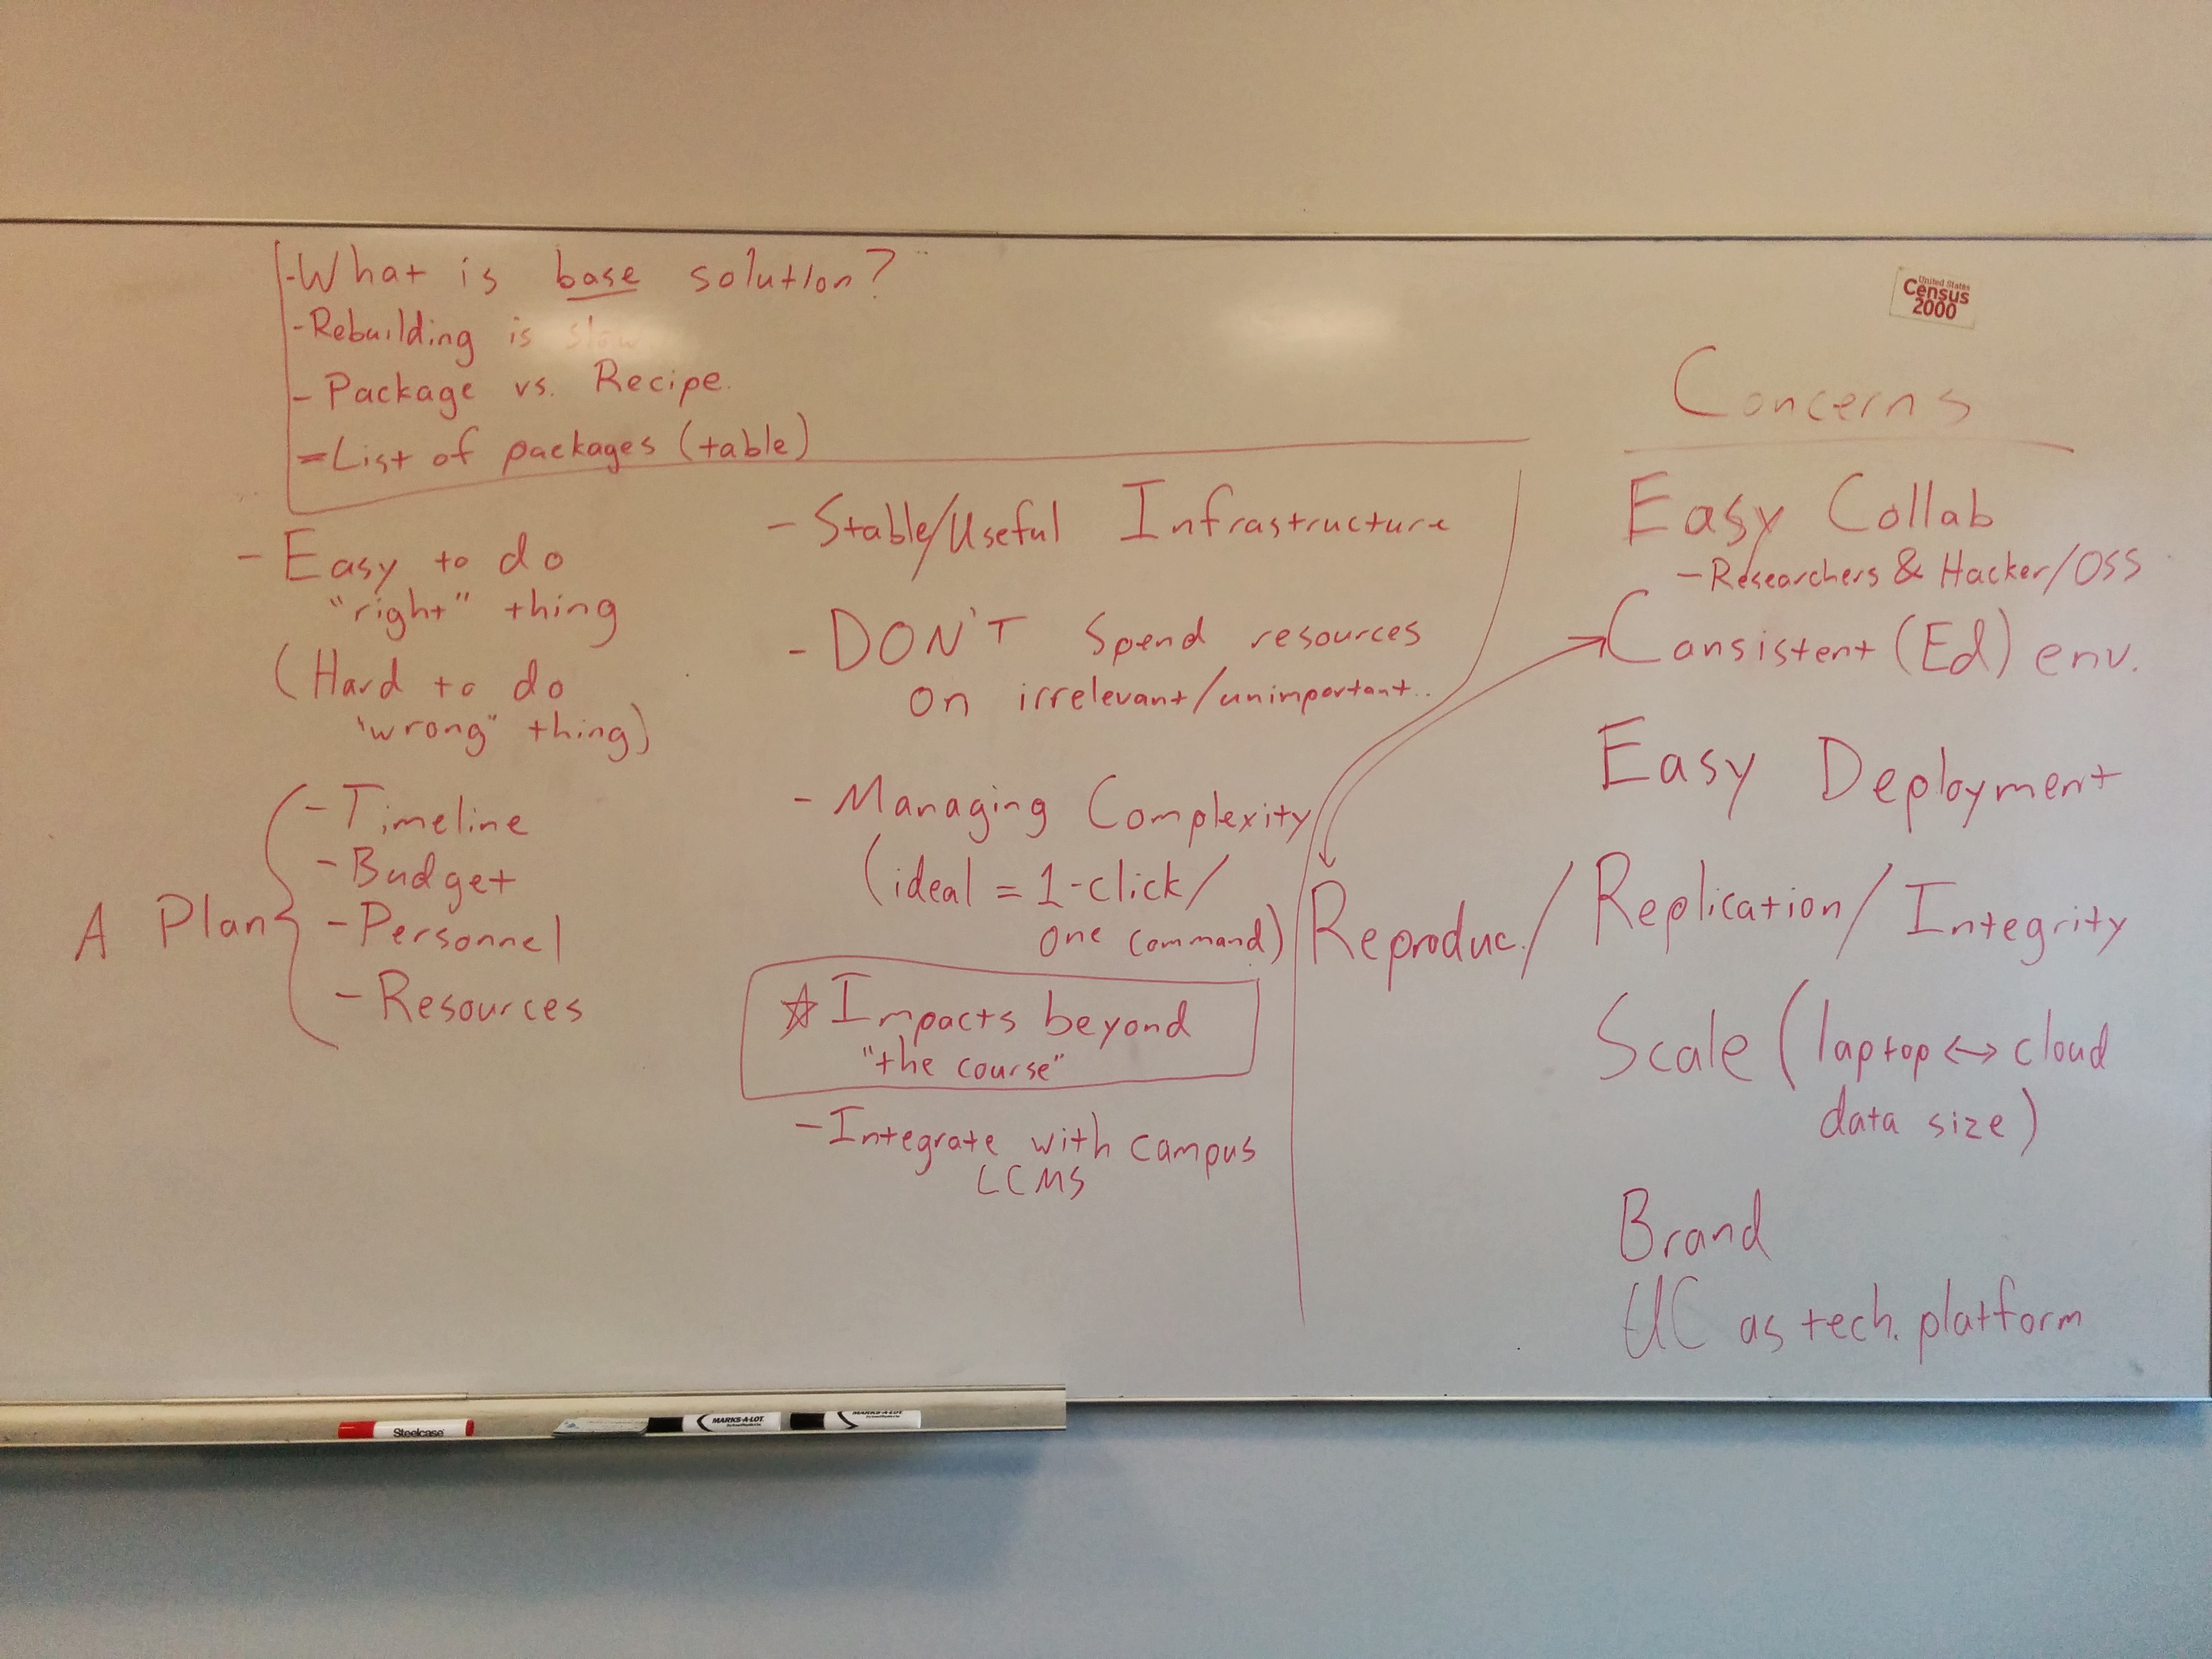 -What is base solution?
-Rebuilding is slow
- Package vs. Recipe.
-List of packages (table)
- Easy to do
"right" thing
(Hard to do
"wrong" thing)
A Plan
- Timeline
- Budget
- Personnel
- Resources
- Stable/Useful Infrastructure
- DON'T spend resources
on irrelevant/unimportant..
- Managing Complexity
(ideal = 1-click/
one command)
☆ Impacts beyond
"the course"
- Integrate with campus
LCMS
United States
Census
2000
Concerns
Easy Collab
- Researchers & Hacker/OSS
Consistent (Ed) env.
Easy Deployment
Reproduc./Replication/Integrity
Scale (laptop ↔ cloud
data size)
Brand
UC as tech. platform
Steelcase
MARKS-A-LOT
MARKS-A-LOT